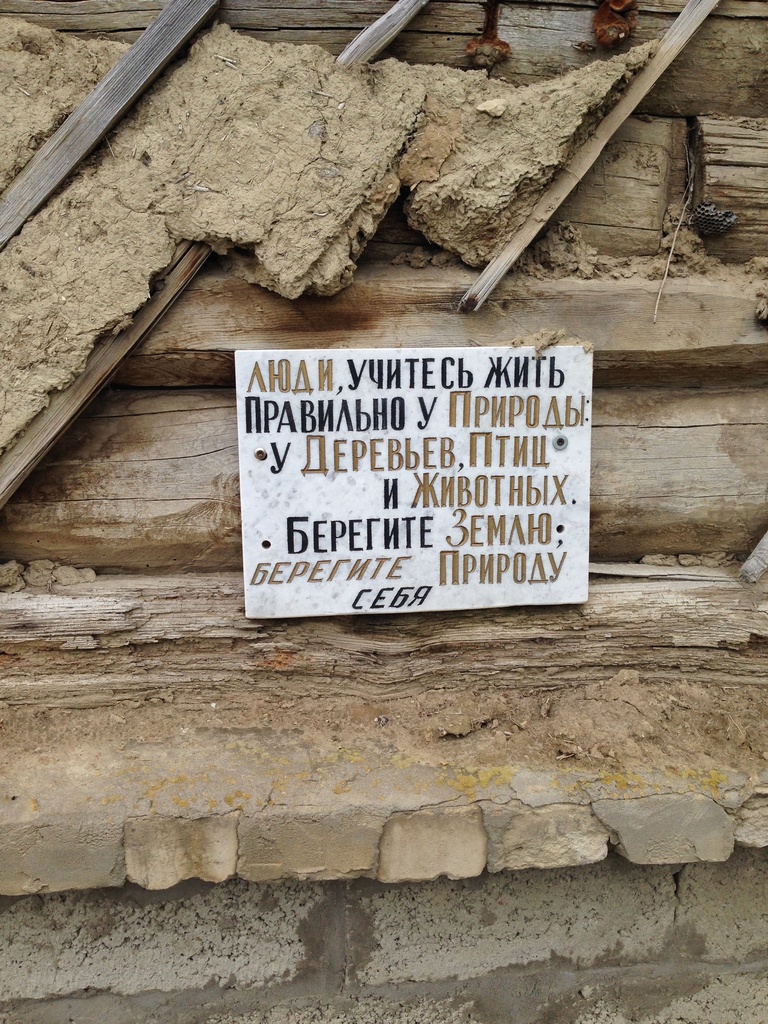 ЛЮДИ, УЧИТЕСЬ ЖИТЬ
ПРАВИЛЬНО У ПРИРОДЫ:
У ДЕРЕВЬЕВ, ПТИЦ
И ЖИВОТНЫХ.
БЕРЕГИТЕ ЗЕМЛЮ;
БЕРЕГИТЕ ПРИРОДУ
СЕБЯ